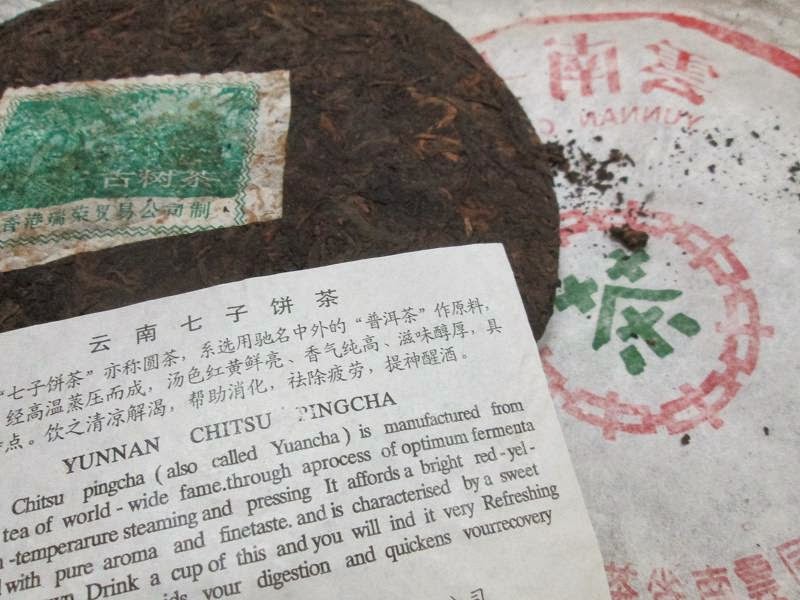 古树茶
香港瑞荣贸易公司制
雲南
YUNNAN
茶
云南七子饼茶
“七子饼茶”亦称圆茶，系选用驰名中外的“普洱茶”作原料，
经高温蒸压而成，汤色红黄鲜亮、香气纯高、滋味醇厚，具
点。饮之清凉解渴，帮助消化，祛除疲劳，提神醒酒。
YUNNAN CHITSU PINGCHA
Chitsu pingcha (also called Yuancha) is manufactured from
tea of world-wide fame.through aprocess of optimum fermenta
-temperarure steaming and pressing It affords a bright red-yel-
with pure aroma and finetaste. and is characterised by a sweet
Drink a cup of this and you will ind it very Refreshing
your digestion and quickens yourrecovery
公司